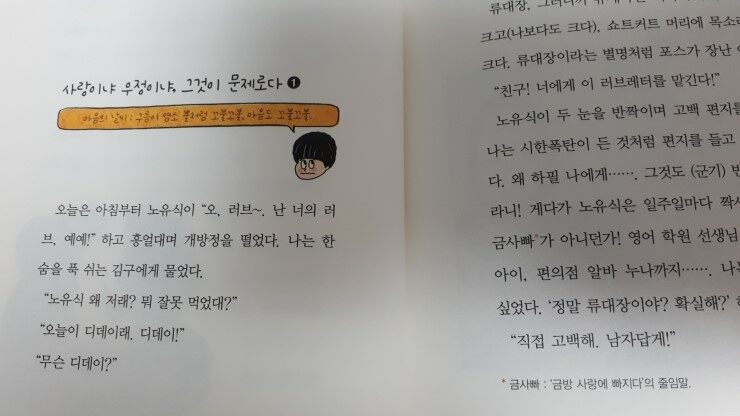 사랑이냐 우정이냐, 그것이 문제로다 ❶
마음의 날씨 : 구름이 염소 뿔처럼 꼬불꼬불, 마음도 꼬불꼬불.
오늘은 아침부터 노유식이 “오, 러브~. 난 너의 러
브, 예예!” 하고 흥얼대며 개방정을 떨었다. 나는 한
숨을 푹 쉬는 김구에게 물었다.
“노유식 왜 저래? 뭐 잘못 먹었대?”
“오늘이 디데이래. 디데이!”
“무슨 디데이?”
류대장, 그러니까
크고(나보다도 크다), 쇼트커트 머리에 목소리
크다. 류대장이라는 별명처럼 포스가 장난
“친구! 너에게 이 러브레터를 맡긴다!”
노유식이 두 눈을 반짝이며 고백 편지를
나는 시한폭탄이 든 것처럼 편지를 들고
다. 왜 하필 나에게……. 그것도 (군기) 반
라니! 게다가 노유식은 일주일마다 짝사
금사빠*가 아니던가! 영어 학원 선생님
아이, 편의점 알바 누나까지……. 나는
싶었다. ‘정말 류대장이야? 확실해?’
“직접 고백해. 남자답게!”
* 금사빠 : ‘금방 사랑에 빠지다’의 줄임말.